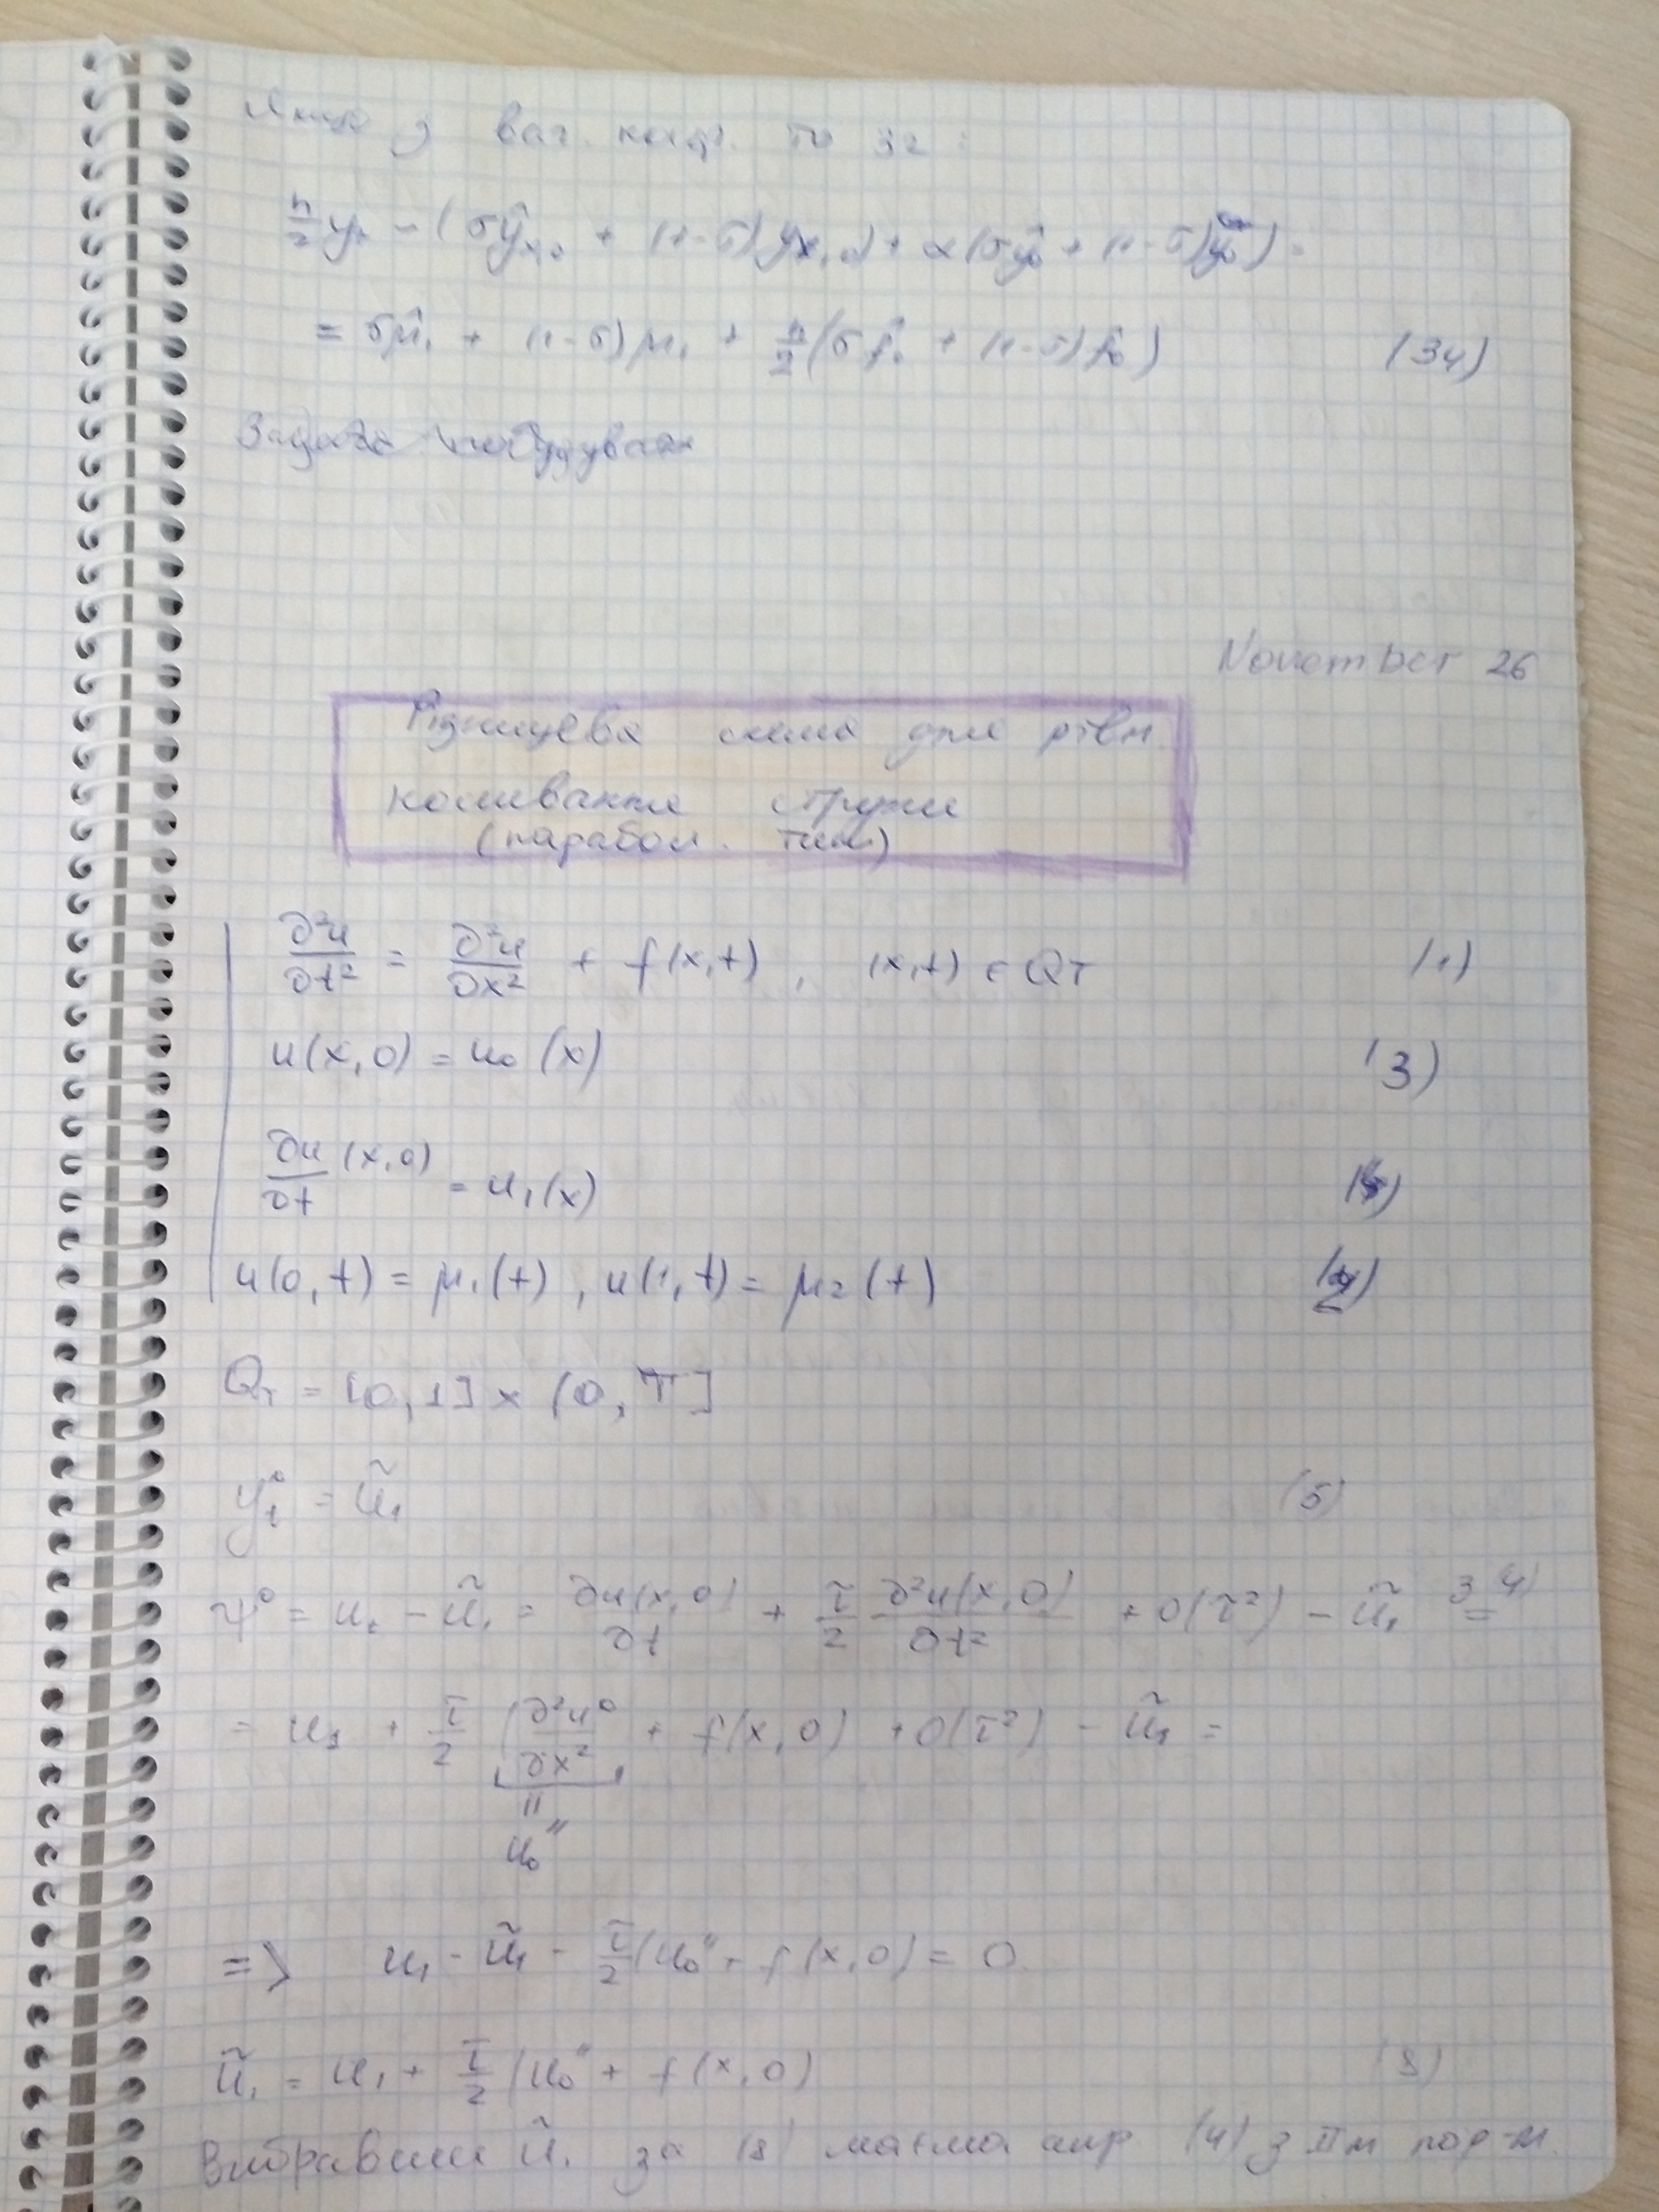 Якщо з ваг. коеф. то зг :
h/2 yₜ - (σŷₓ,₀ + (1-σ)yₓ,₀) + α(σŷ₀ + (1-σ)y₀) =
= σμ̂₁ + (1-σ)μ₁ + h/2 (σf̂₀ + (1-σ)f₀) (34)
Задача
November 26
Різницева схема для рівн.
коливання струни
(парабол. типу)
∂²u/∂t² = ∂²u/∂x² + f(x,t) , (x,t) ∈ Qт (1)
u(x,0) = u₀(x) (3)
∂u/∂t (x,0) = u₁(x) (4)
u(0,t) = μ₁(t) , u(1,t) = μ₂(t) (2)
Qт = [0,1] × (0,T]
yₜ⁰ = ũ₁ (5)
ψ⁰ = uₜ - ũ₁ = ∂u(x,0)/∂t + τ/2 ∂²u(x,0)/∂t² + O(τ²) - ũ₁ = з 4)
= u₁ + τ/2 (∂²u⁰/∂x² + f(x,0) + O(τ²) - ũ₁ =
||
u₀''
=> u₁ - ũ₁ - τ/2 (u₀'' + f(x,0) = 0
ũ₁ = u₁ + τ/2 (u₀'' + f(x,0) (8)
Вибравши ũ₁ за (8) матимем апр (4) з II м пор-м.